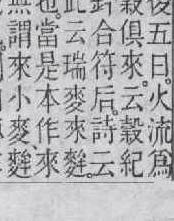 後五日。火流爲
穀俱來。云穀紀
鈐合符后。詩云
此云瑞麥來麰。
也。當是本作來
無謂來小麥、麰